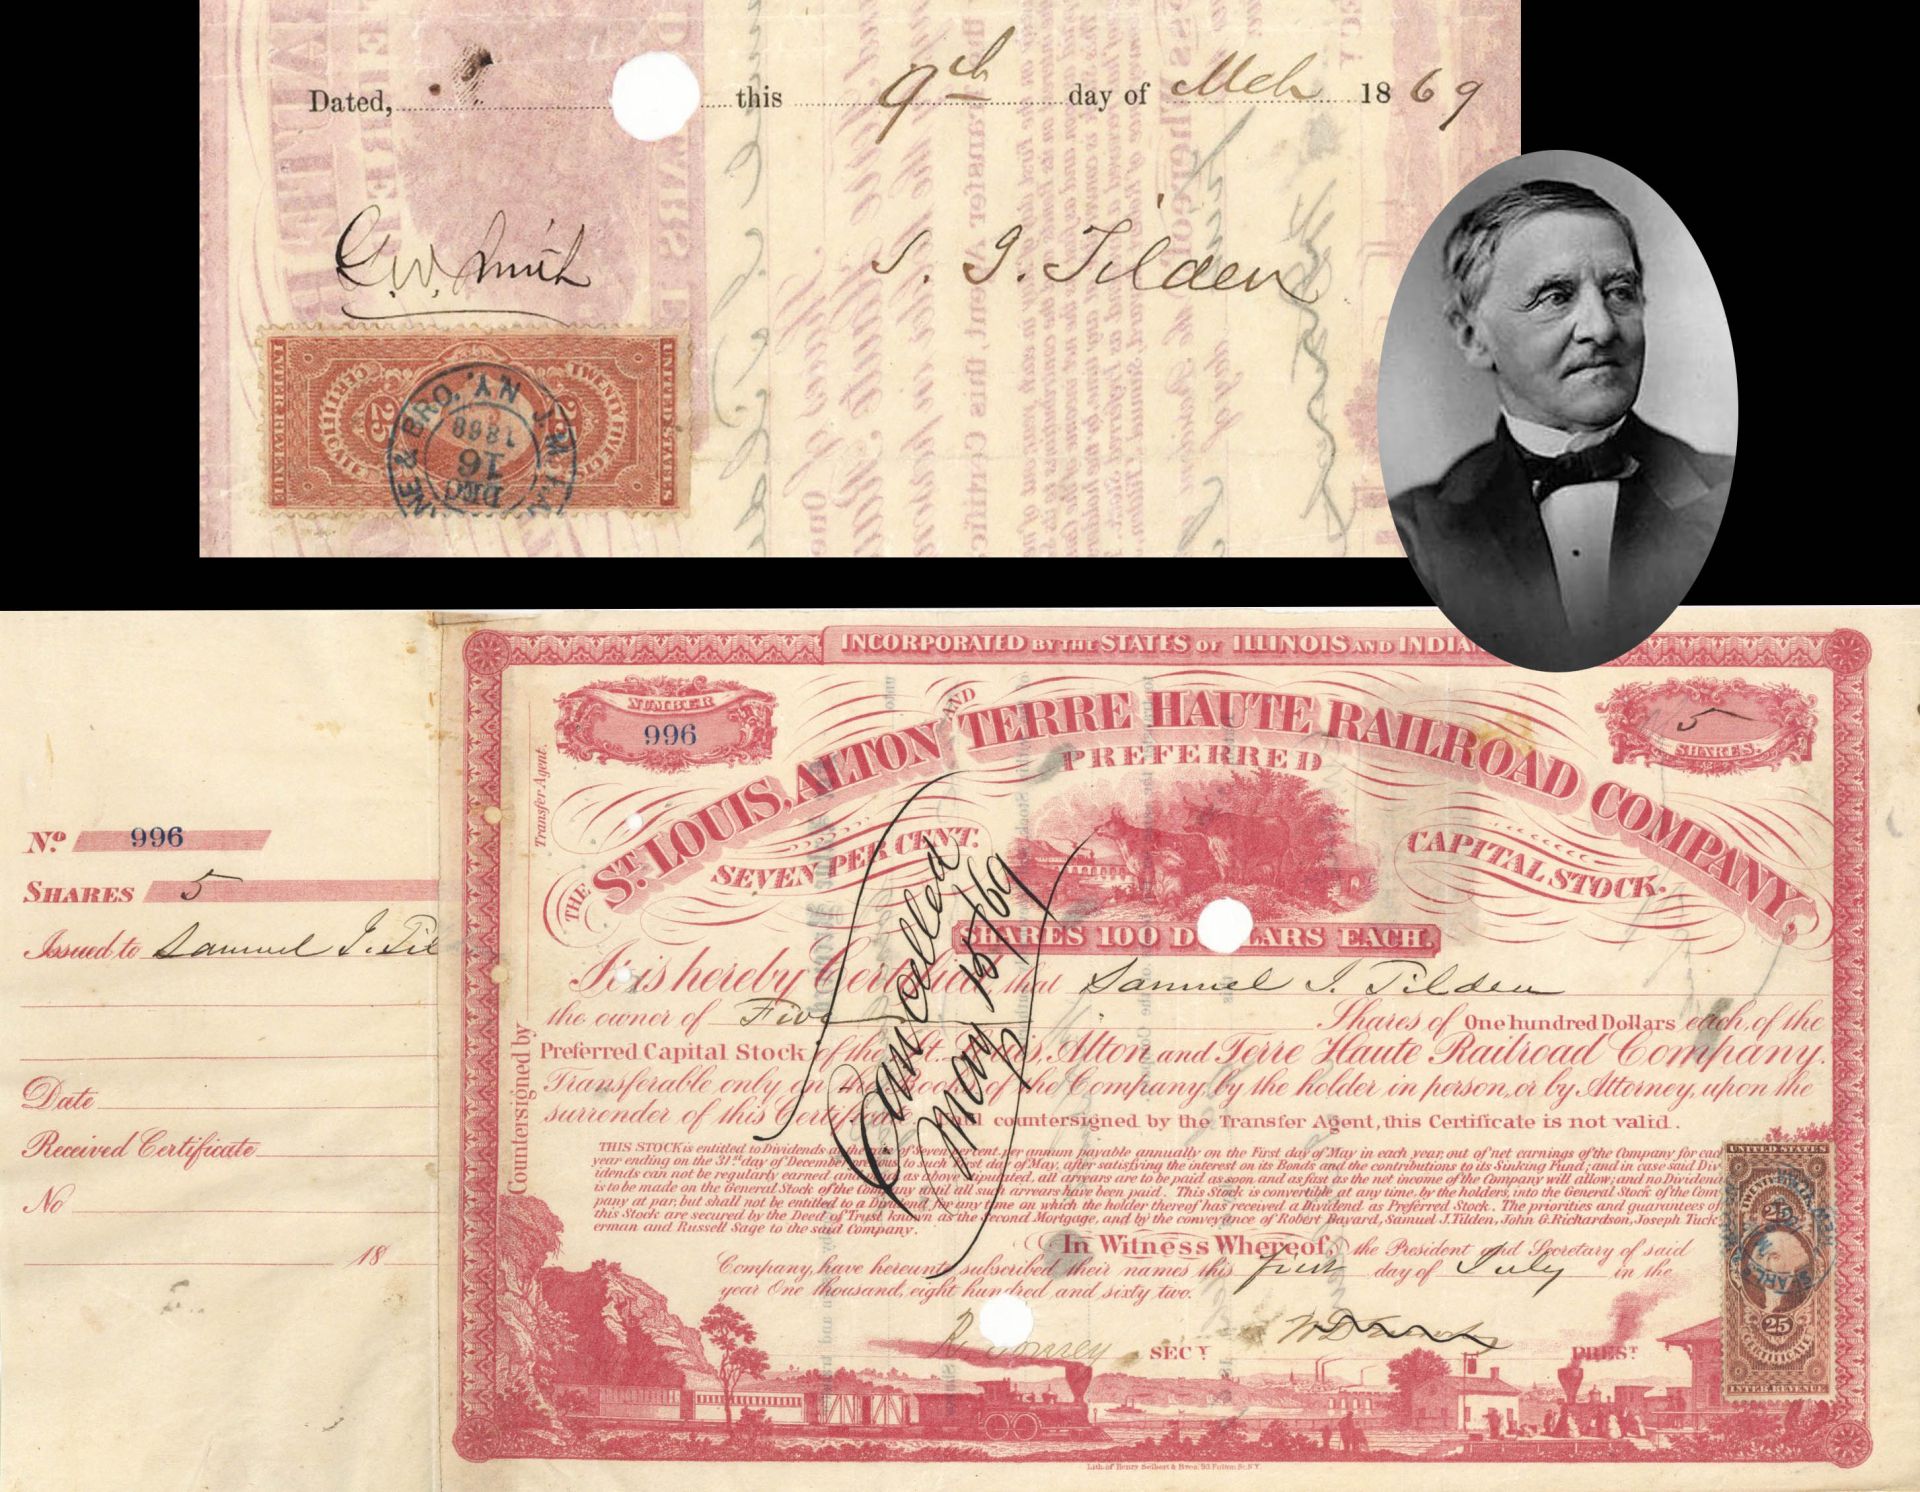 Dated, this 9th day of Mch 1869
G.W. Smith S. J. Tilden
UNITED STATES
TWENTY FIVE CENTS
25 25
CERTIFICATE
INTER. REVENUE
& BRO. N.Y.
DEC
16
1868
INCORPORATED BY THE STATES OF ILLINOIS AND INDIA
NUMBER
996
5
SHARES.
THE ST. LOUIS, ALTON AND TERRE HAUTE RAILROAD COMPANY,
PREFERRED
SEVEN PER CENT. CAPITAL STOCK.
SHARES 100 DOLLARS EACH.
No. 996
SHARES 5
Issued to Samuel J. Til
Date
Received Certificate
No
18
Transfer Agent.
Countersigned by
It is hereby Certified, that Samuel J. Tilden
the owner of Five Shares of One hundred Dollars each, of the
Preferred Capital Stock of the St. Louis, Alton and Terre Haute Railroad Company.
Transferable only on the Books of the Company, by the holder in person, or by Attorney, upon the
surrender of this Certificate until countersigned by the Transfer Agent, this Certificate is not valid.
Cancelled
May 15/69
THIS STOCK is entitled to Dividends at the rate of Seven per cent. per annum payable annually on the First day of May in each year, out of net earnings of the Company for
year ending on the 31st day of December previous to such first day of May, after satisfying the interest on its Bonds and the contributions to its Sinking Fund; and in case said Div
idends can not be regularly earned and paid as above stipulated, all arrears are to be paid as soon and as fast as the net income of the Company will allow; and no Dividend
is to be made on the General Stock of the Company until all such arrears have been paid. This Stock is convertible at any time, by the holders, into the General Stock of the Com
pany at par; but shall not be entitled to a Dividend for any time on which the holder thereof has received a Dividend as Preferred Stock. The priorities and guarantees of
this Stock are secured by the Deed of Trust known as the Second Mortgage, and by the conveyance of Robert Bayard, Samuel J. Tilden, John G. Richardson, Joseph Tuck
erman and Russell Sage to the said Company.
In Witness Whereof, the President and Secretary of said
Company, have hereunto subscribed their names this First day of July in the
year One thousand, eight hundred and sixty two.
SECY PREST
UNITED STATES
TWENTY FIVE
25
25
CERTIFICATE
INTER. REVENUE
Lith. of Henry Seibert & Bros. 93 Fulton St. N.Y.